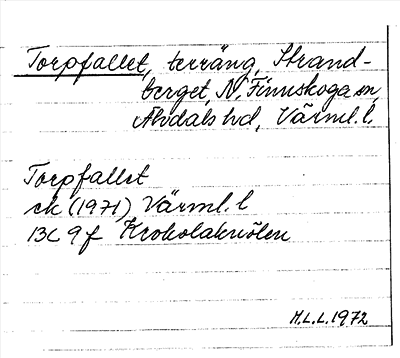 Torpfallet, terräng, Strand-
berget, N. Finnskoga sn,
Älvdals hd, Värml. l.
Torpfallet
ek (1971) Värml. l
13C 9f Krokolaknölen
H.L.L. 1972